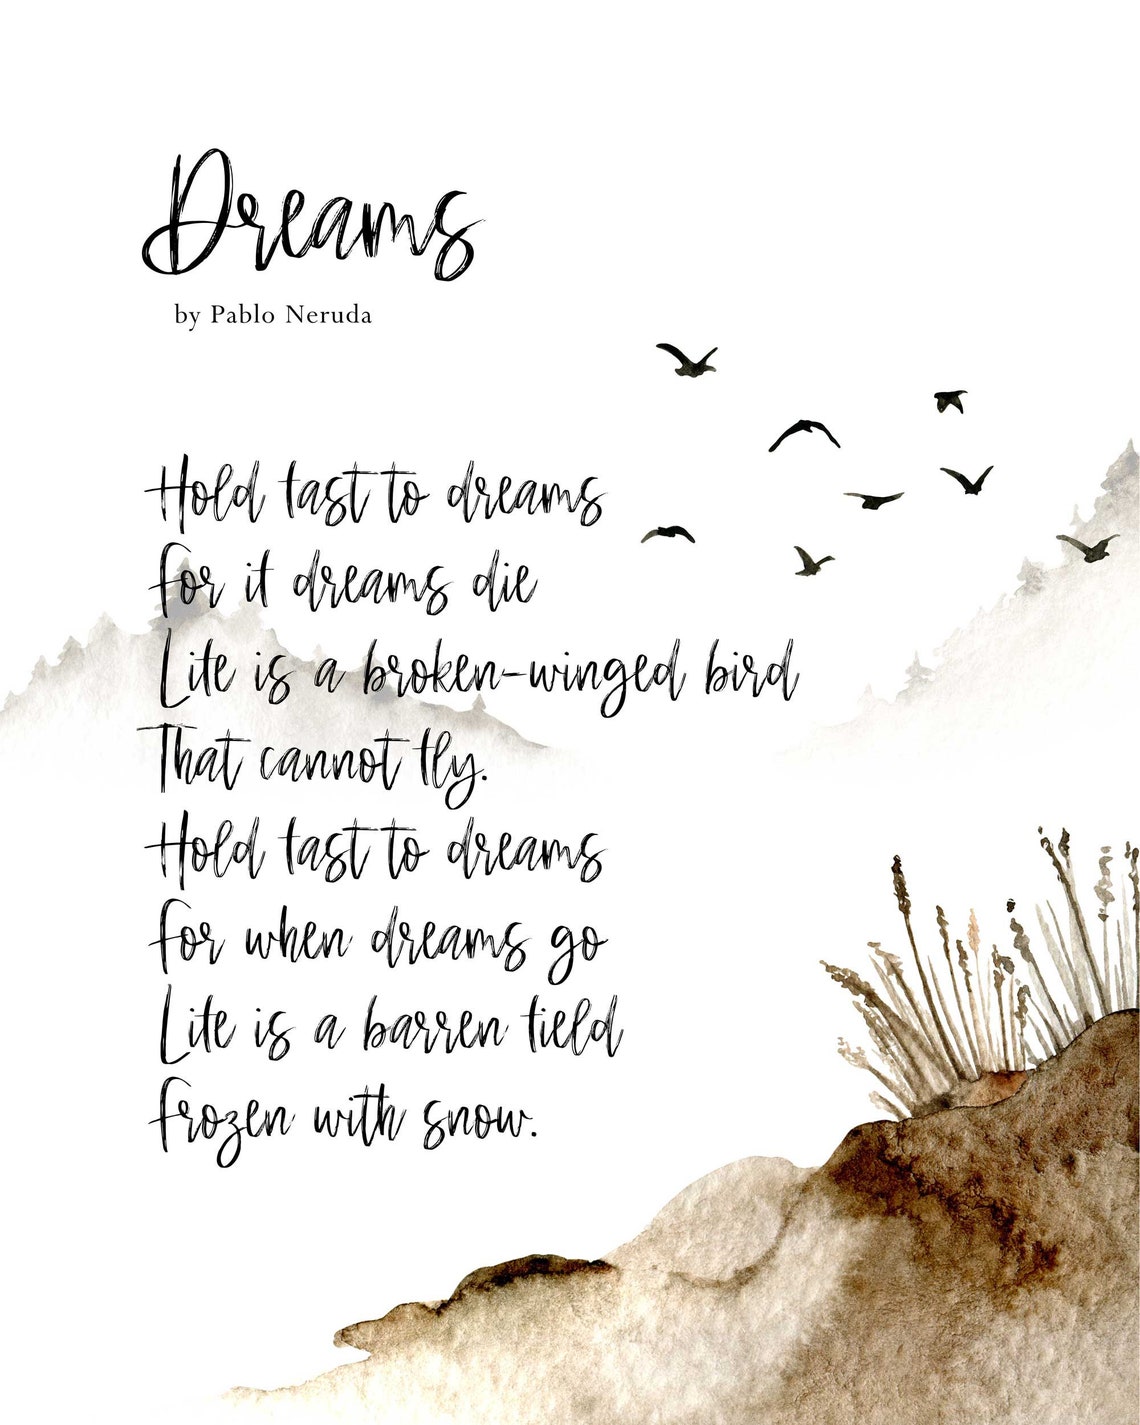 Dreams
by Pablo Neruda
Hold fast to dreams
For if dreams die
Life is a broken-winged bird
That cannot fly.
Hold fast to dreams
For when dreams go
Life is a barren field
Frozen with snow.